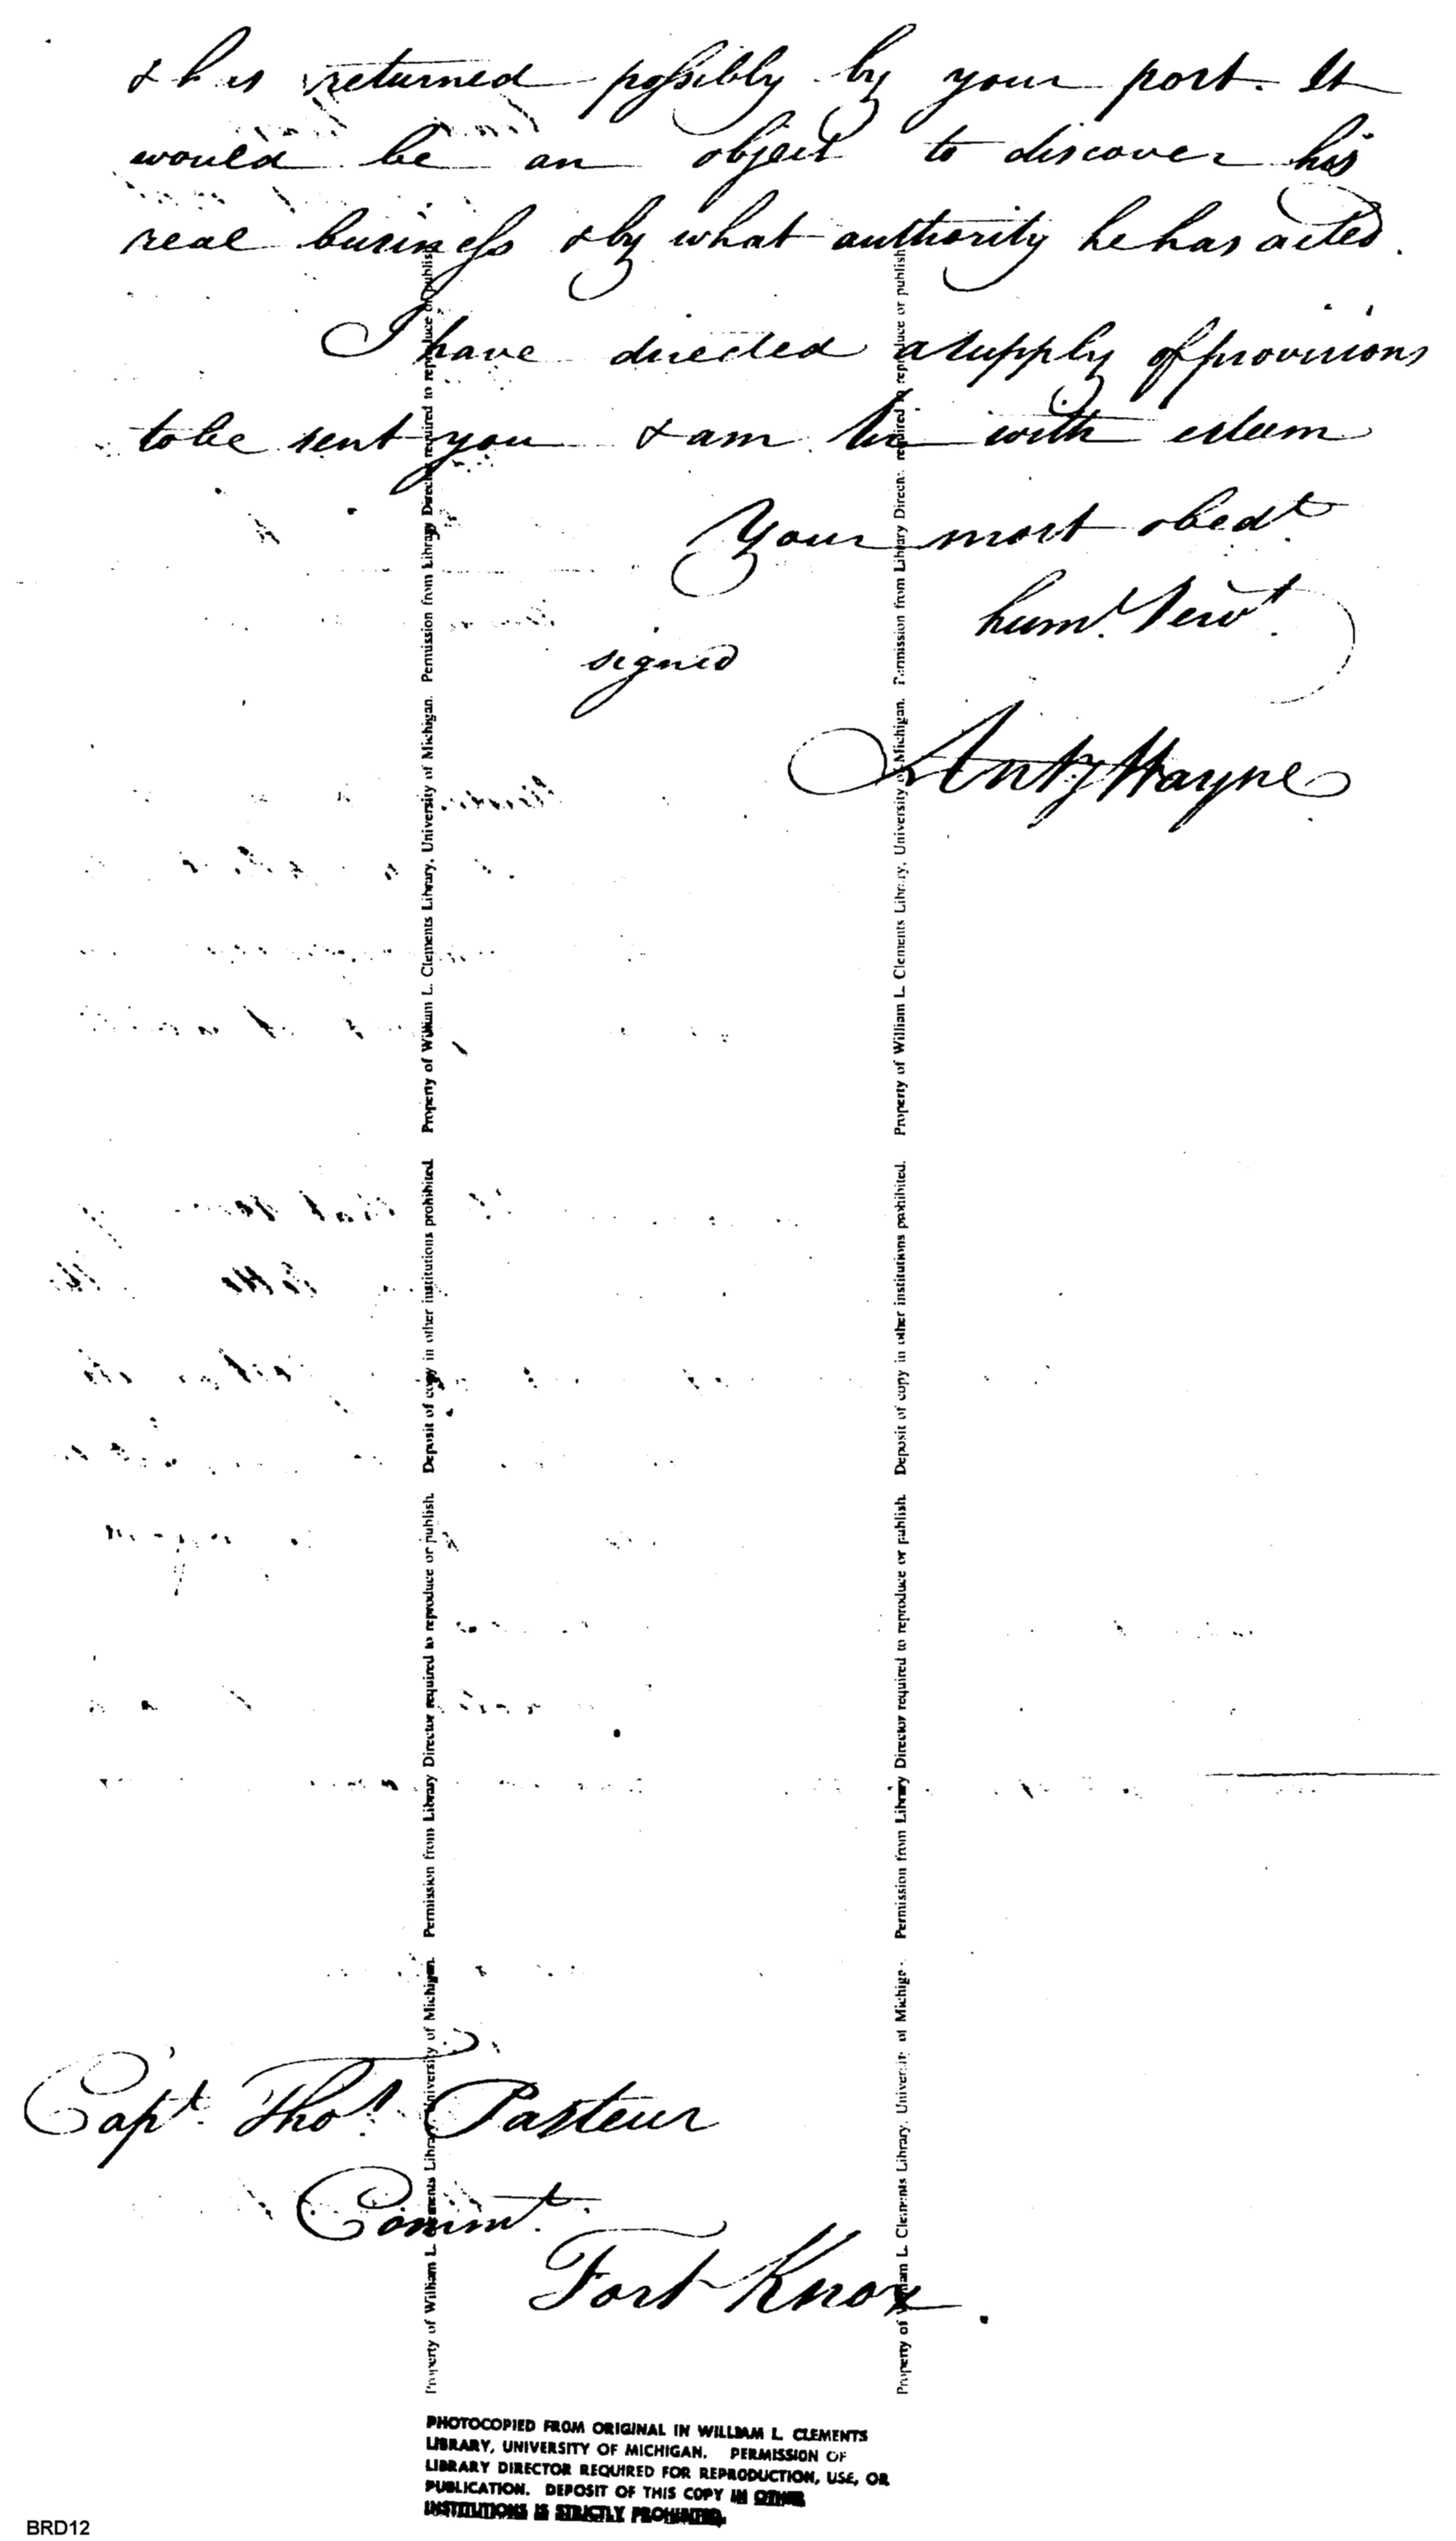 & has returned possibly by your port. It
would be an object to discover his
real business & by what authority he has acted.
I have directed a supply of provisions
to be sent you & am Sir with esteem
Your most obedt
humt. Servt.
signed
Anty Wayne
Capt. Thos. Pasteur
Commt.
Fort Knox.
Property of William L. Clements Library, University of Michigan. Permission from Library Director required to reproduce or publish. Deposit of copy in other institutions prohibited. Property of William L. Clements Library, University of Michigan. Permission from Library Director required to reproduce or publish
Property of William L. Clements Library, University of Michigan. Permission from Library Director required to reproduce or publish. Deposit of copy in other institutions prohibited. Property of William L. Clements Library, University of Michigan. Permission from Library Director required to reproduce or publish
PHOTOCOPIED FROM ORIGINAL IN WILLIAM L. CLEMENTS
LIBRARY, UNIVERSITY OF MICHIGAN. PERMISSION OF
LIBRARY DIRECTOR REQUIRED FOR REPRODUCTION, USE, OR
PUBLICATION. DEPOSIT OF THIS COPY IN OTHER
INSTITUTIONS IS STRICTLY PROHIBITED.
BRD12